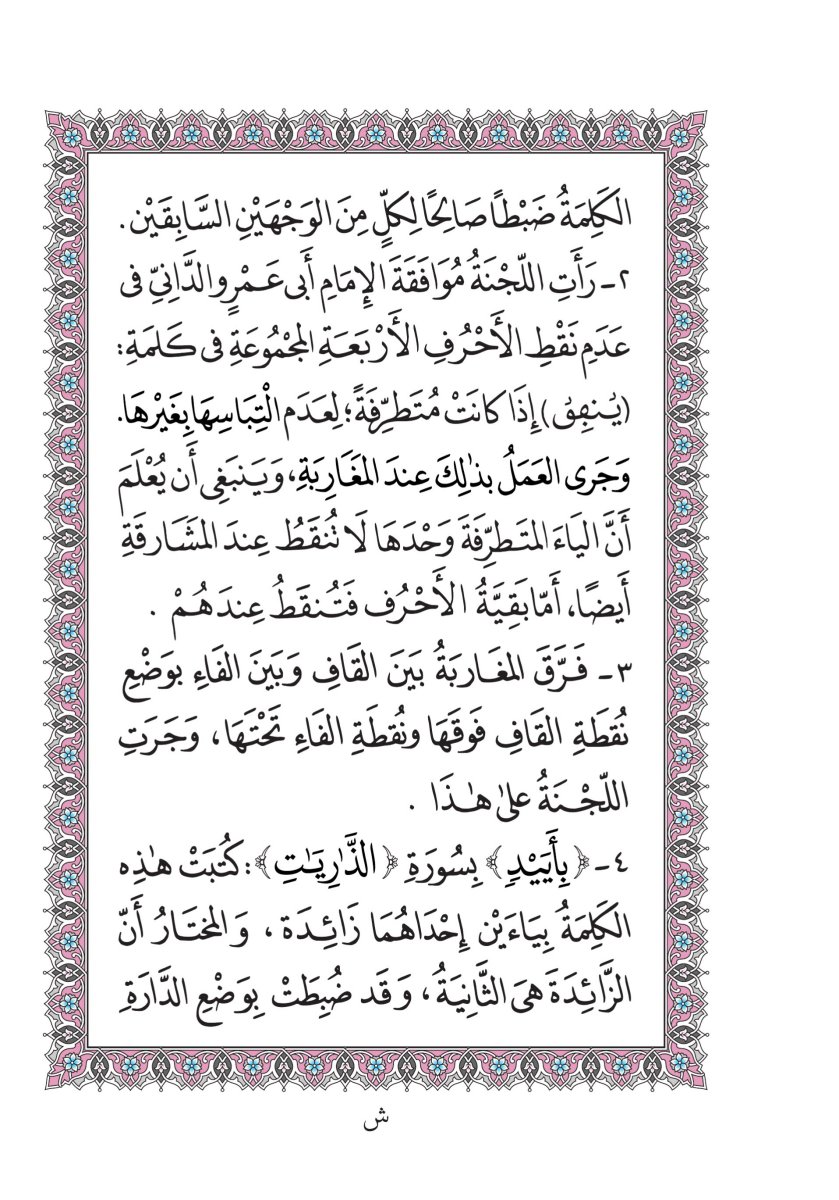 الكَلِمَةُ ضَبْطًا صَالِحًا لِكلٍّ مِنَ الوَجْهَيْنِ السَّابِقَيْن .
٢ـ رَأَتِ اللّجْنَةُ مُوَافَقَةَ الإِمَامِ أَبى عَمْرٍو الدَّانِىِّ فى
عَدَمِ نَقْطِ الأَحْرُفِ الأَرْبَعَةِ المَجْمُوعَةِ فى كَلمَةِ :
(يُنفِقُ) إِذَا كانَتْ مُتَطرِّفَةً؛ لِعَدَمِ الْتِبَاسِهَا بِغَيْرْهَا.
وَجَرى العَمَلُ بذٰلِكَ عِندَ المغَارِبَةِ، وَيَنبَغِى أَن يُعْلَمَ
أَنَّ اليَاءَ المتَطرِّفَةَ وَحْدَهَا لَا تُنقَطُ عِندَ المشَارقَةِ
أَيضًا، أَمّا بَقِيَّةُ الأَحْرُف فَتُنقَطُ عِندَهُمْ .
٣ـ فَرَّقَ المغَاربَةُ بَيَنَ القَافِ وَبَينَ الفَاءِ بوَضْعِ
نُقطَةِ القَافِ فَوقَهَا ونُقطَةِ الفَاءِ تَحْتَهَا، وَجَرَتِ
اللّجْنَةُ علىٰ هٰذَا .
٤ـ ﴿بِأَيَيْدٍ﴾ بِسُورَةِ ﴿الذَّٰرِيَٰتِ﴾: كُتبَتْ هٰذِه
الكَلِمَةُ بِيَاءَيْن إِحْدَاهُمَا زَائِدَة ، وَالمختَارُ أَنّ
الزَّائِدَةَ هىَ الثَّانِيَةُ، وَقَد ضُبِطَتْ بِوَضْعِ الدَّارَةِ
ش